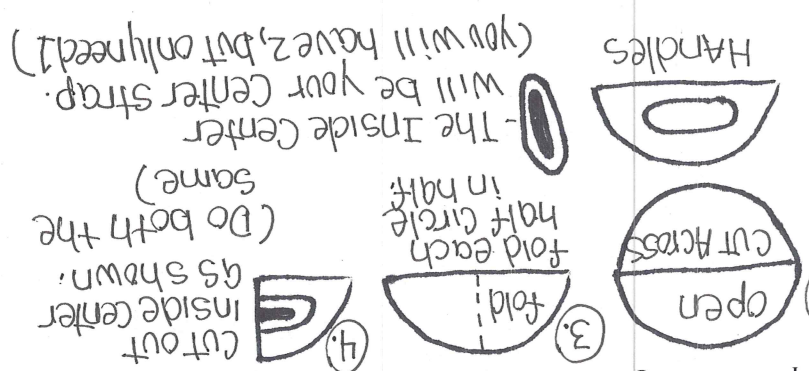 open
CUT Across
3.
fold
fold each
half circle
in half.
4.
cut out
inside center
as shown.
(Do both the
same)
HAndles
- The Inside Center
will be your center strap.
(you will have 2, but only need 1)